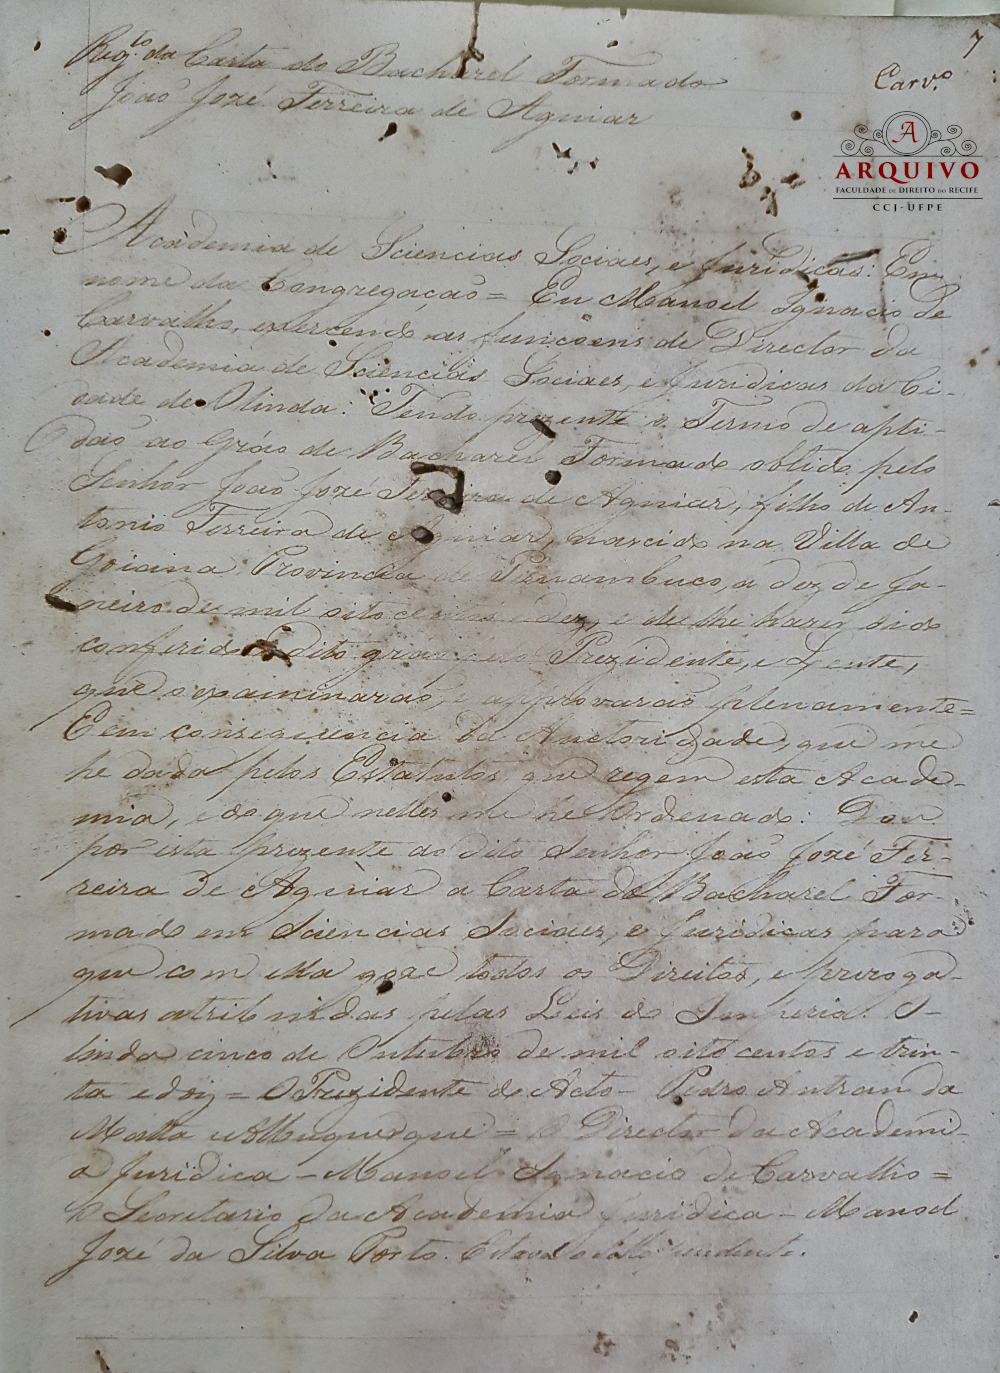 7
Reg.to da Carta do Bacharel Formado
Carv.o
João Jozé Ferreira de Aguiar
ARQUIVO
FACULDADE DE DIREITO DO RECIFE
CCJ-UFPE
Academia de Sciencias Sociaes, e Juridicas: Em
nome da Congregação = Eu Manoel Ignacio de
Carvalho, exercendo as funcoens de Director da
Academia de Sciencias Sociaes, e Juridicas da Ci-
dade de Olinda: Tendo prezente o Termo de apti-
dão ao Gráo de Bacharel Formado obtido pelo
Senhor João Jozé Ferreira de Aguiar, filho de An-
tonio Ferreira de Aguiar, nascido na Villa de
Goiana Provincia de Pernambuco, a dez de Ja-
neiro de mil oito centos e dez, e de lhe haver sido
conferido o dito grao pelo Prezidente, e Lente,
que o examinarão, e approvarão plenamente =
E em consequencia da Auctoridade, que me
he dada pelos Estatutos que regem esta Acade-
mia, e do que nelles me he Ordenado: Dou
por esta prezente ao dito Senhor João Jozé Fer-
reira de Aguiar a Carta de Bacharel For-
mado em Sciencias Sociaes, e Juridicas para
que com ella goze todos os Direitos, e preroga-
tivas atribuidas pelas Leis do Imperio. O-
linda cinco de Outubro de mil oito centos e trin-
ta e doiz = O Prezidente do Acto - Pedro Autran da
Matta e Albuquerque = O Director da Academi-
a Juridica - Manoel Ignacio de Carvalho =
O Secretario da Academia Juridica - Manoel
Jozé da Silva Porto. Estava o sello pendente.